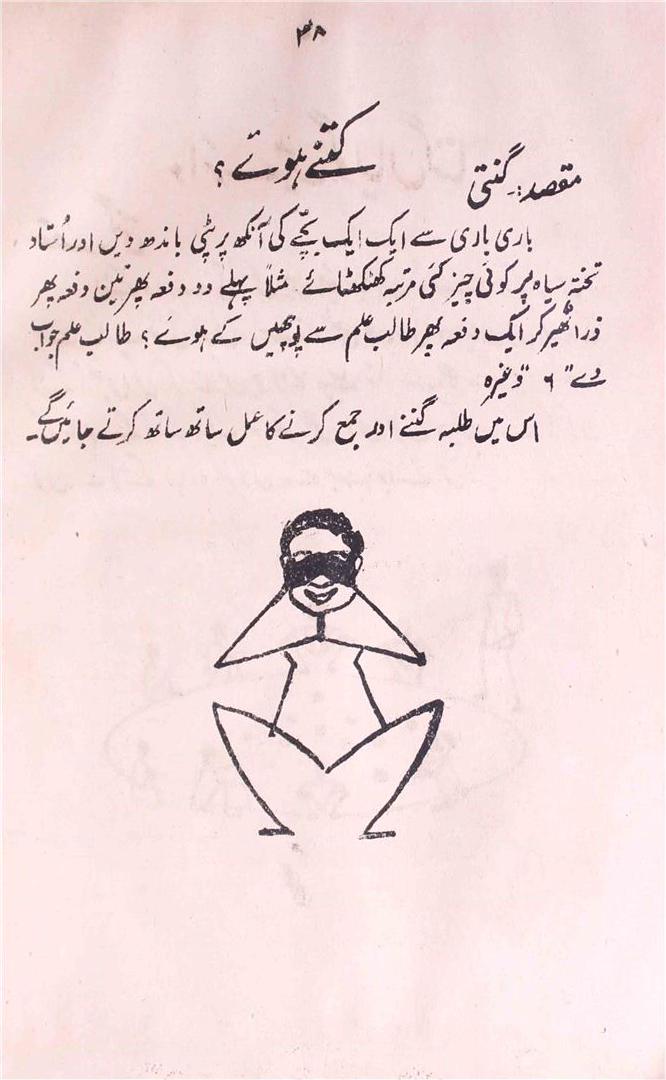 ۳۸
کتنے ہوئے ؟
مقصد :۔ گنتی
باری باری سے ایک ایک بچّے کی آنکھ پر پٹی باندھ دیں اور اُستاد
تختۂ سیاہ پر کوئی چیز کئی مرتبہ کھٹکھٹائے مثلاً پہلے دو دفعہ پھر تین دفعہ پھر
ذرا ٹھیر کر ایک دفعہ پھر طالب علم سے پوچھیں کے ہوئے ؟ طالب علم جواب
دے " ۶ " وغیرہ
اس میں طلبہ گننے اور جمع کرنے کا عمل ساتھ ساتھ کرتے جائیں گے ۔